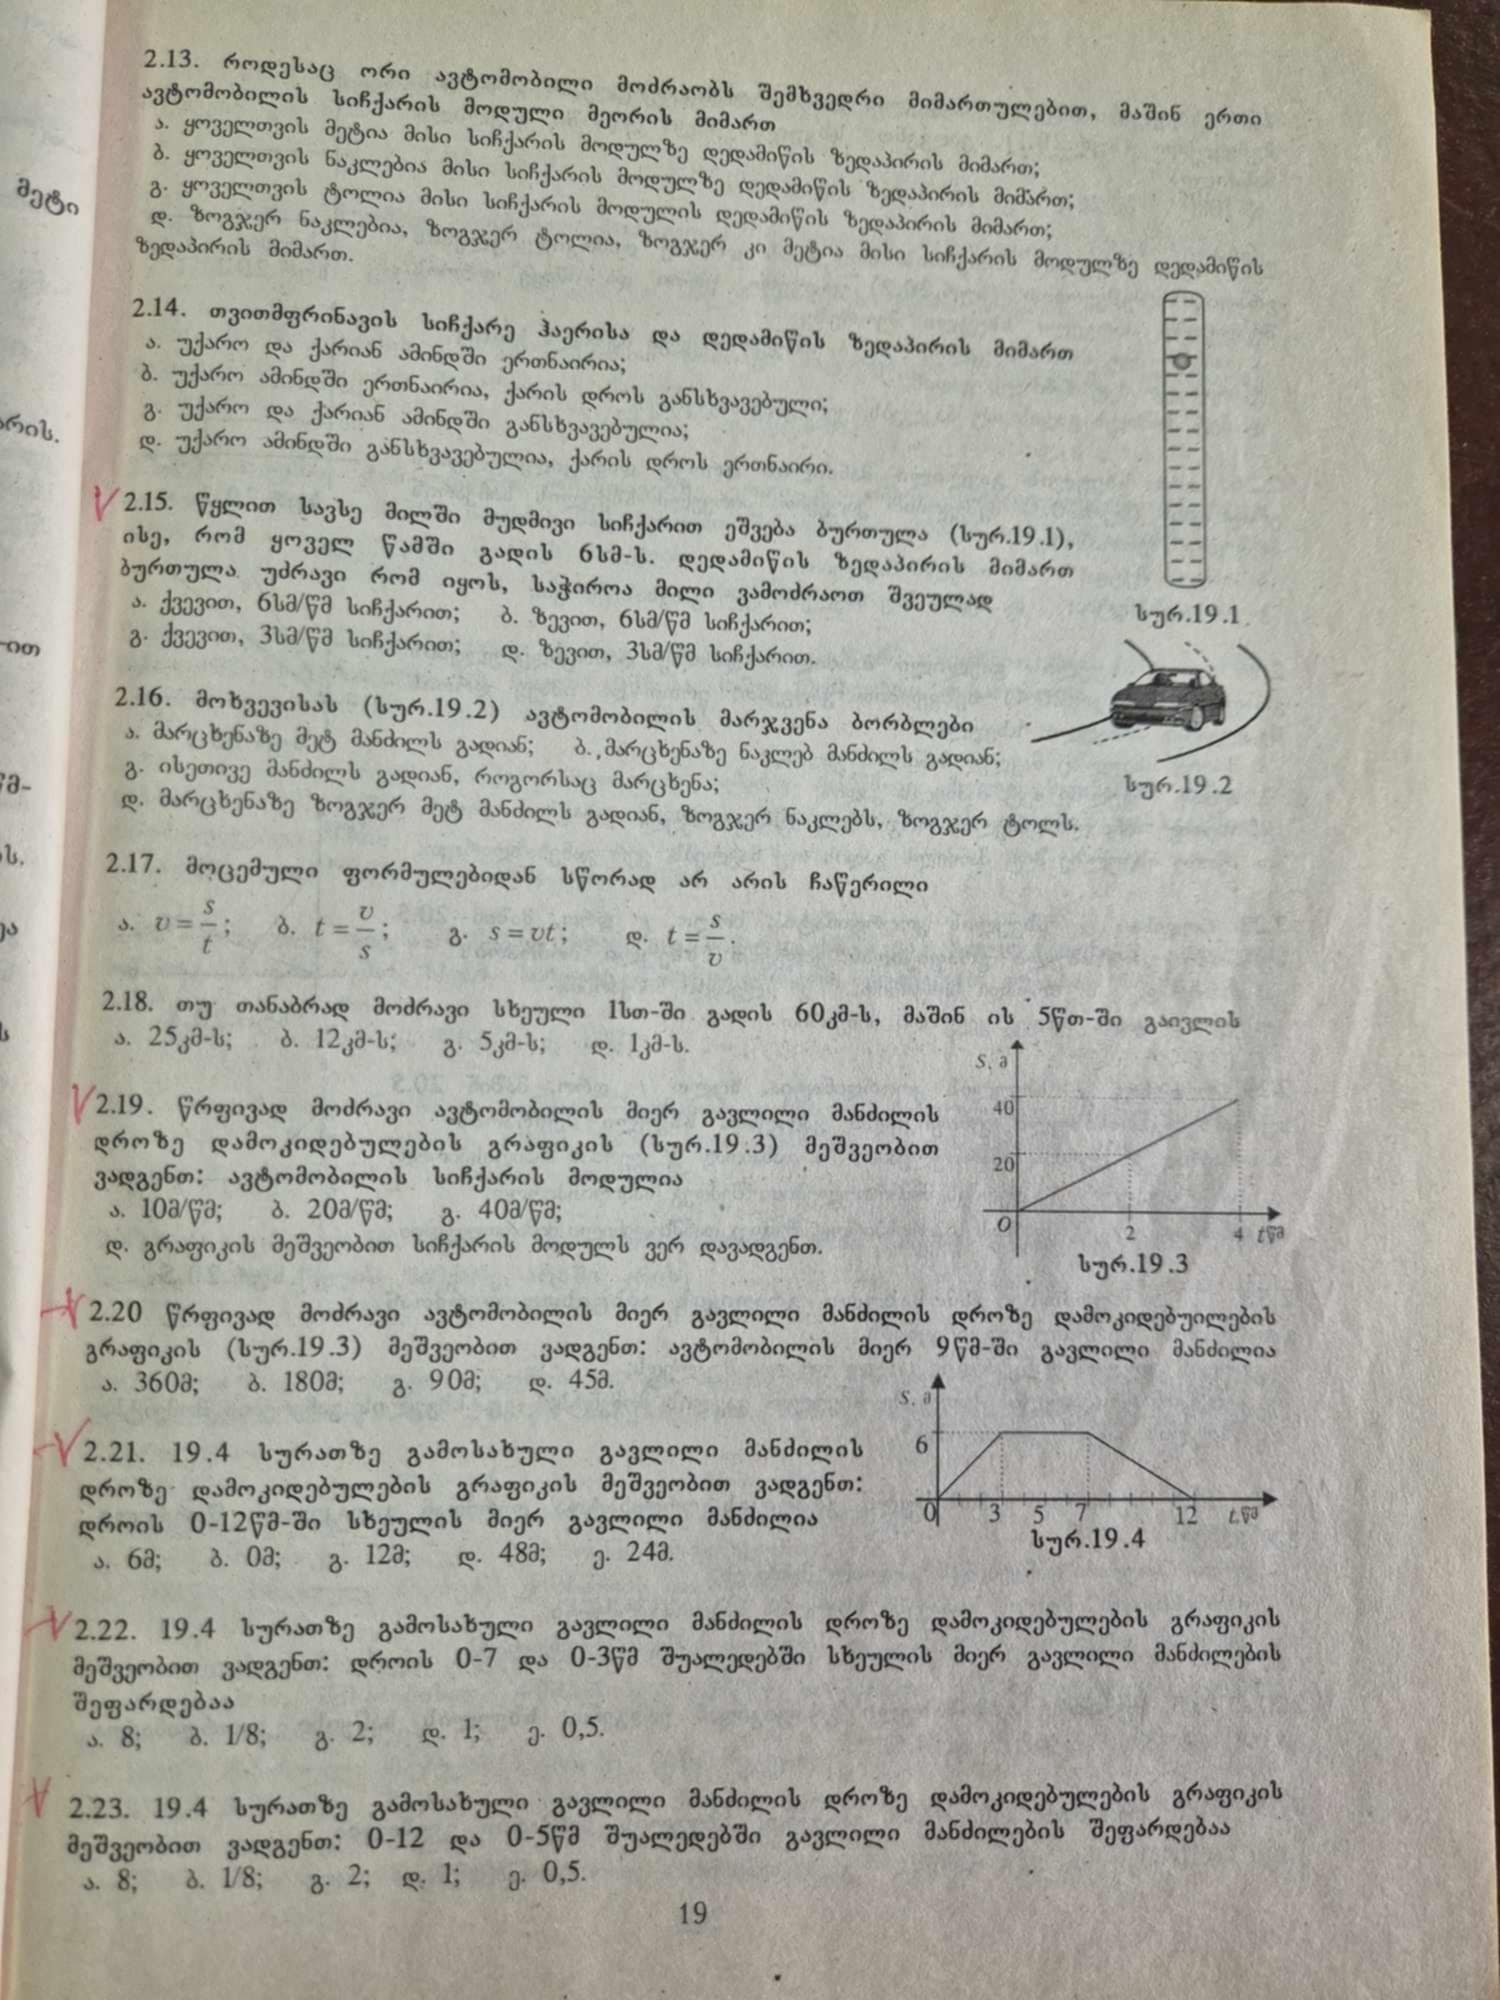 2.13. როდესაც ორი ავტომობილი მოძრაობს შემხვედრი მიმართულებით, მაშინ ერთი
ავტომობილის სიჩქარის მოდული მეორის მიმართ
ა. ყოველთვის მეტია მისი სიჩქარის მოდულზე დედამიწის ზედაპირის მიმართ;
ბ. ყოველთვის ნაკლებია მისი სიჩქარის მოდულზე დედამიწის ზედაპირის მიმართ;
გ. ყოველთვის ტოლია მისი სიჩქარის მოდულის დედამიწის ზედაპირის მიმართ;
დ. ზოგჯერ ნაკლებია, ზოგჯერ ტოლია, ზოგჯერ კი მეტია მისი სიჩქარის მოდულზე დედამიწის
ზედაპირის მიმართ.
მეტი
2.14. თვითმფრინავის სიჩქარე ჰაერისა და დედამიწის ზედაპირის მიმართ
ა. უქარო და ქარიან ამინდში ერთნაირია;
ბ. უქარო ამინდში ერთნაირია, ქარის დროს განსხვავებული;
გ. უქარო და ქარიან ამინდში განსხვავებულია;
დ. უქარო ამინდში განსხვავებულია, ქარის დროს ერთნაირი.
2.15. წყლით სავსე მილში მუდმივი სიჩქარით ეშვება ბურთულა (სურ.19.1),
ისე, რომ ყოველ წამში გადის 6სმ-ს. დედამიწის ზედაპირის მიმართ
ბურთულა უძრავი რომ იყოს, საჭიროა მილი ვამოძრაოთ შვეულად
ა. ქვევით, 6სმ/წმ სიჩქარით; ბ. ზევით, 6სმ/წმ სიჩქარით;
გ. ქვევით, 3სმ/წმ სიჩქარით; დ. ზევით, 3სმ/წმ სიჩქარით.
სურ.19.1
2.16. მოხვევისას (სურ.19.2) ავტომობილის მარჯვენა ბორბლები
ა. მარცხენაზე მეტ მანძილს გადიან; ბ. მარცხენაზე ნაკლებ მანძილს გადიან;
გ. ისეთივე მანძილს გადიან, როგორსაც მარცხენა;
დ. მარცხენაზე ზოგჯერ მეტ მანძილს გადიან, ზოგჯერ ნაკლებს, ზოგჯერ ტოლს.
სურ.19.2
2.17. მოცემული ფორმულებიდან სწორად არ არის ჩაწერილი
ა. v = s/t; ბ. t = v/s; გ. s = vt; დ. t = s/v.
2.18. თუ თანაბრად მოძრავი სხეული 1სთ-ში გადის 60კმ-ს, მაშინ ის 5წთ-ში გაივლის
ა. 25კმ-ს; ბ. 12კმ-ს; გ. 5კმ-ს; დ. 1კმ-ს.
2.19. წრფივად მოძრავი ავტომობილის მიერ გავლილი მანძილის
დროზე დამოკიდებულების გრაფიკის (სურ.19.3) მეშვეობით
ვადგენთ: ავტომობილის სიჩქარის მოდულია
ა. 10მ/წმ; ბ. 20მ/წმ; გ. 40მ/წმ;
დ. გრაფიკის მეშვეობით სიჩქარის მოდულს ვერ დავადგენთ.
s, მ
40
20
O 2 4 t წმ
სურ.19.3
2.20 წრფივად მოძრავი ავტომობილის მიერ გავლილი მანძილის დროზე დამოკიდებუილების
გრაფიკის (სურ.19.3) მეშვეობით ვადგენთ: ავტომობილის მიერ 9წმ-ში გავლილი მანძილია
ა. 360მ; ბ. 180მ; გ. 90მ; დ. 45მ.
2.21. 19.4 სურათზე გამოსახული გავლილი მანძილის
დროზე დამოკიდებულების გრაფიკის მეშვეობით ვადგენთ:
დროის 0-12წმ-ში სხეულის მიერ გავლილი მანძილია
ა. 6მ; ბ. 0მ; გ. 12მ; დ. 48მ; ე. 24მ.
s, მ
6
0 3 5 7 12 t,წმ
სურ.19.4
2.22. 19.4 სურათზე გამოსახული გავლილი მანძილის დროზე დამოკიდებულების გრაფიკის
მეშვეობით ვადგენთ: დროის 0-7 და 0-3წმ შუალედებში სხეულის მიერ გავლილი მანძილების
შეფარდებაა
ა. 8; ბ. 1/8; გ. 2; დ. 1; ე. 0,5.
2.23. 19.4 სურათზე გამოსახული გავლილი მანძილის დროზე დამოკიდებულების გრაფიკის
მეშვეობით ვადგენთ: 0-12 და 0-5წმ შუალედებში გავლილი მანძილების შეფარდებაა
ა. 8; ბ. 1/8; გ. 2; დ. 1; ე. 0,5.
19